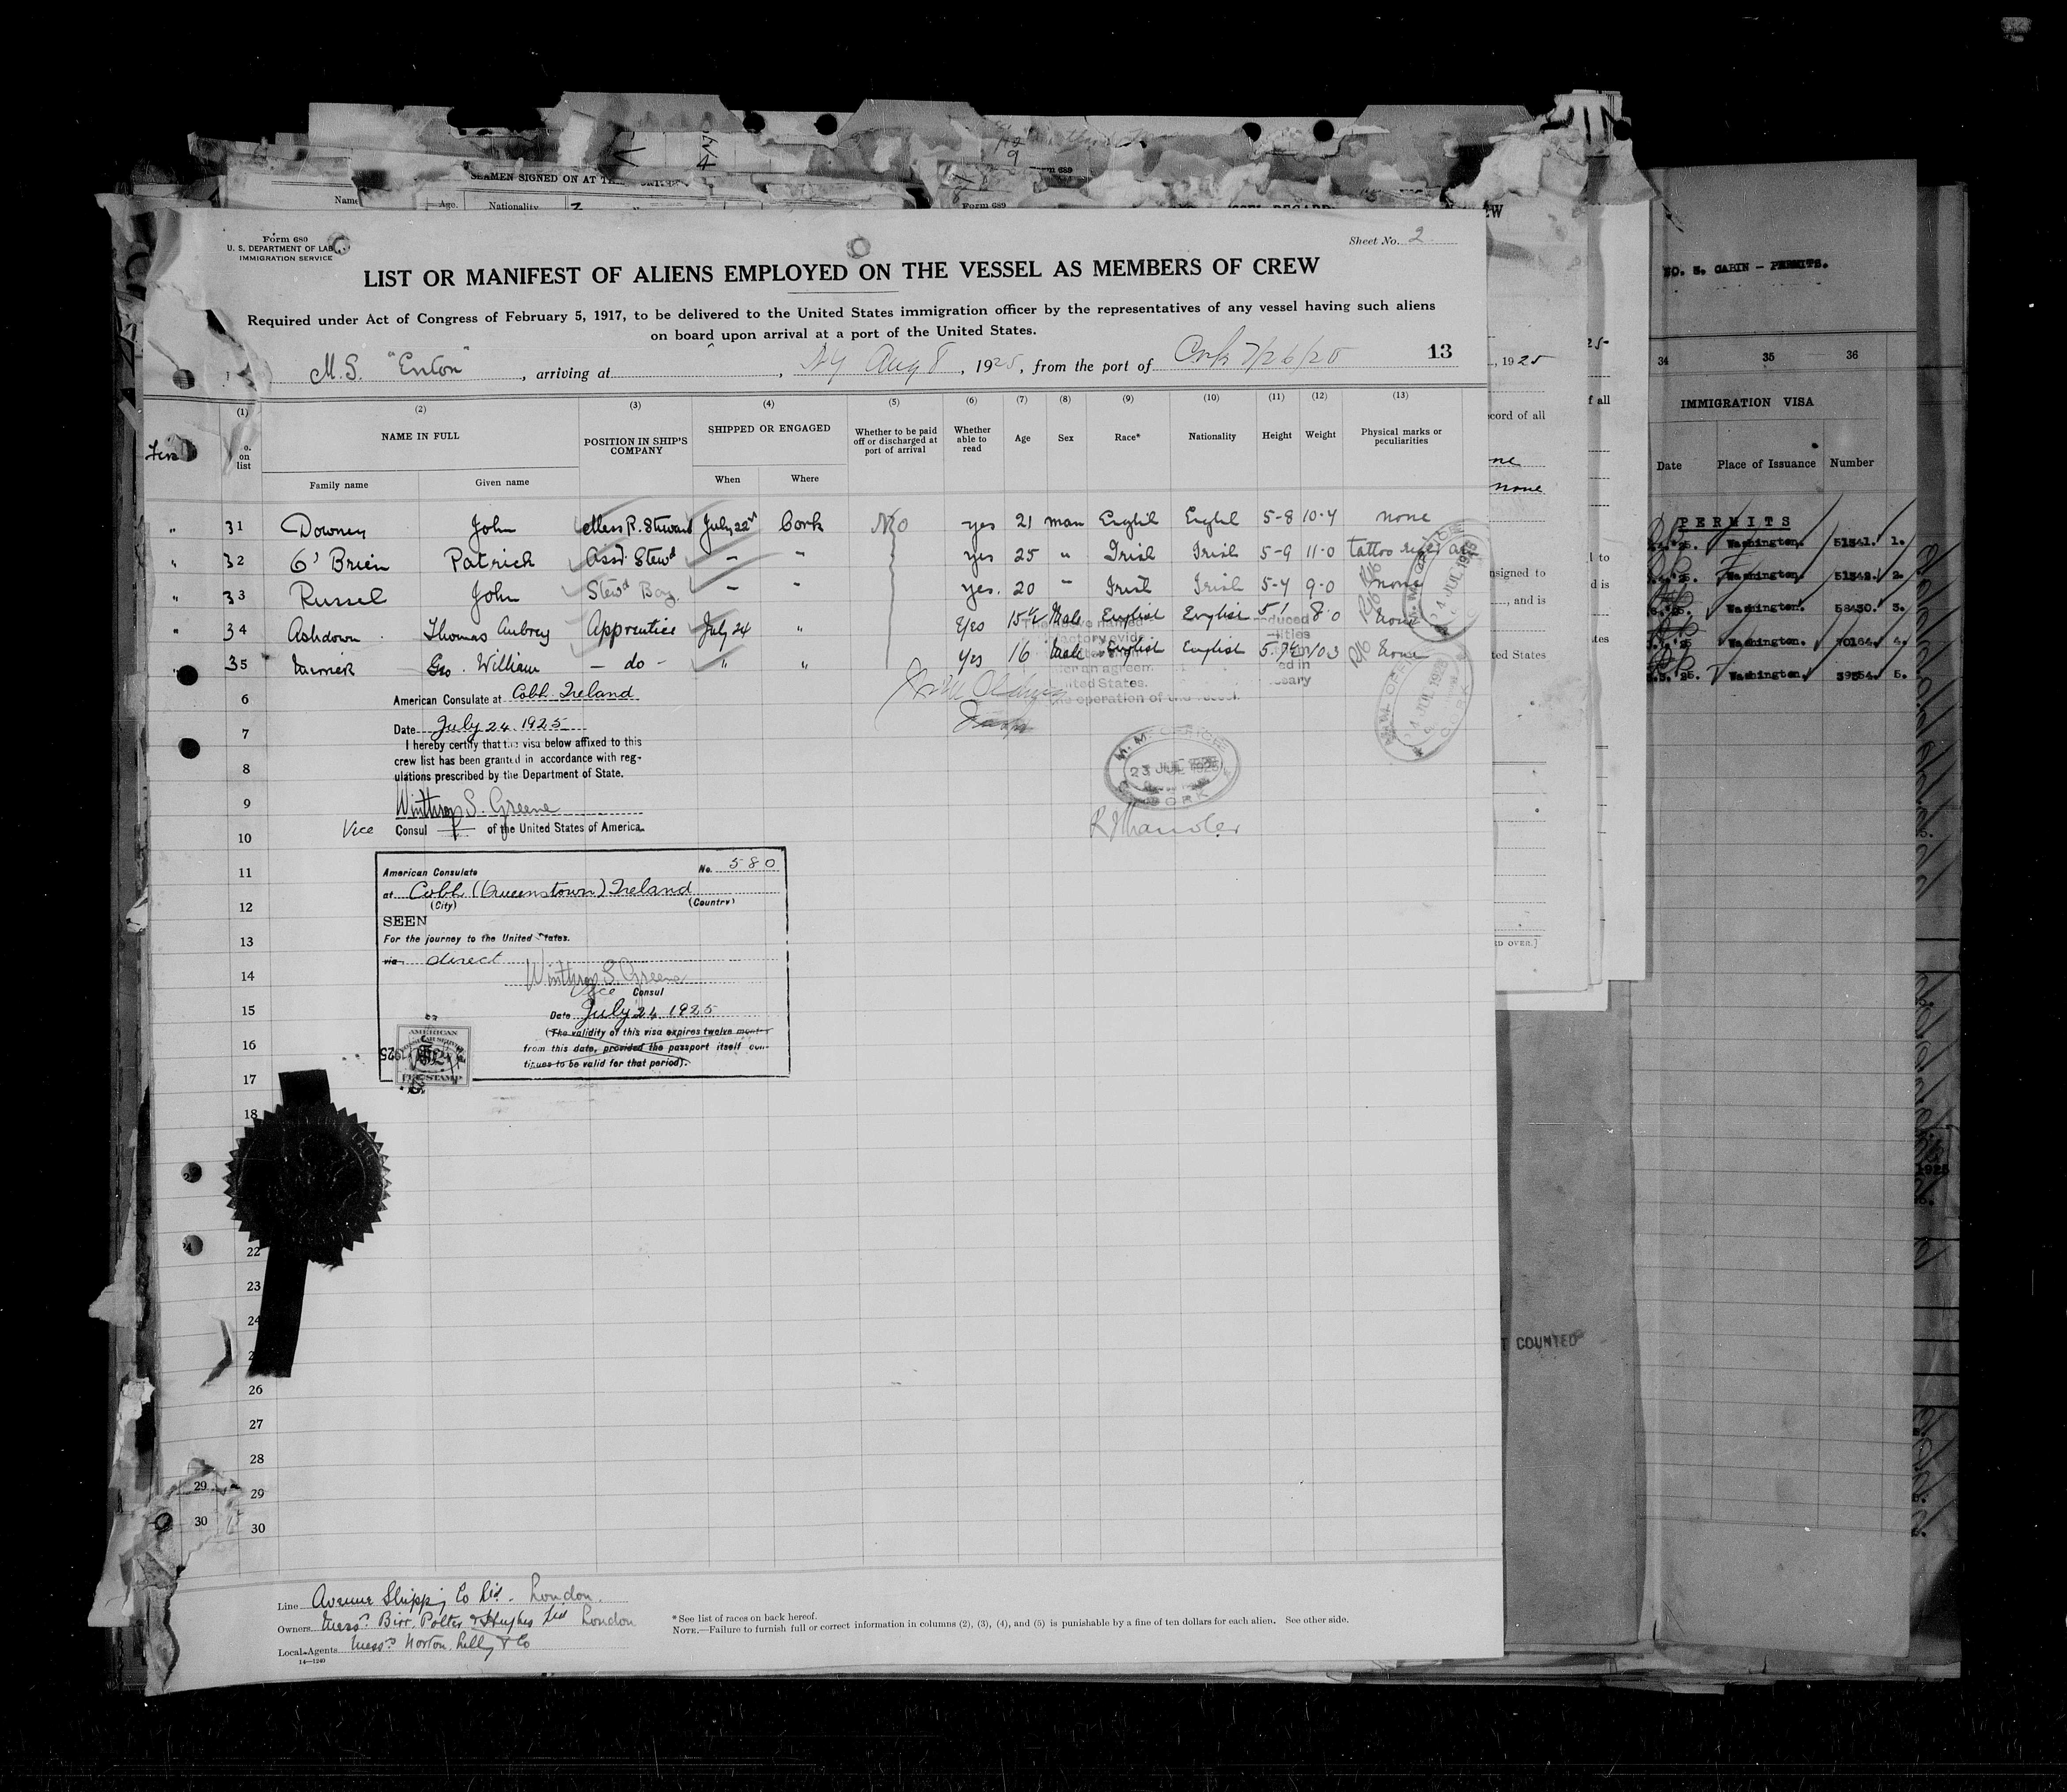 SEAMEN SIGNED ON AT
Name
Age.
Nationality
Form 689
Form 680
U. S. DEPARTMENT OF LAB
IMMIGRATION SERVICE
Sheet No. 2
LIST OR MANIFEST OF ALIENS EMPLOYED ON THE VESSEL AS MEMBERS OF CREW
Required under Act of Congress of February 5, 1917, to be delivered to the United States immigration officer by the representatives of any vessel having such aliens
on board upon arrival at a port of the United States.
M.S. , arriving at , NY Aug 8, 1925, from the port of Cork 7/26/25
13
(1) (2) (3) (4) (5) (6) (7) (8) (9) (10) (11) (12) (13)
on list
NAME IN FULL
POSITION IN SHIP'S COMPANY
SHIPPED OR ENGAGED
Whether to be paid off or discharged at port of arrival
Whether able to read
Age
Sex
Race*
Nationality
Height
Weight
Physical marks or peculiarities
Family name
Given name
When
Where
" 31 Downey John Mess R. Steward July 22 Cork No yes 21 man Englil Englil 5-8 10-4 none
" 32 O'Brien Patrick Asst. Stewd - " yes 25 " Irish Irish 5-9 11-0 tattoo
" 33 Russel John Stewd Boy. - " yes. 20 " Irish Irish 5-4 9-0 none
" 34 Ashdown Thomas Aubrey Apprentice July 24 " Yes 15½ Male English English 5-1 8-0 none
" 35 Geo. William - do - " " Yes 16 Male English English none
6
7
8
9
10
11
12
13
14
15
16
17
18
22
23
24
26
27
28
29
30
29
30
American Consulate at Cobh. Ireland
Date July 24. 1925
I hereby certify that the visa below affixed to this
crew list has been granted in accordance with reg-
ulations prescribed by the Department of State.
Winthrop S. Greene
Vice Consul of the United States of America.
United States.
the operation of the vessel.
23 JUL 1925
CORK
American Consulate No. 580
at Cobh (Queenstown) Ireland
(City) (Country)
SEEN
For the journey to the United States.
via direct
Winthrop S. Greene
Vice Consul
Date July 24. 1925
(The validity of this visa expires twelve months
from this date, provided the passport itself con-
tinues to be valid for that period).
AMERICAN
FEE STAMP
Line Avenue Shipping Co Ltd. London.
Owners Messrs. Birr, Potter & Hughes Ltd London
Local Agents Messrs Norton, Lilly & Co
14—1240
*See list of races on back hereof.
NOTE.—Failure to furnish full or correct information in columns (2), (3), (4), and (5) is punishable by a fine of ten dollars for each alien. See other side.
, 1925
cord of all
none
signed to
, and is
ted States
T COUNTED
NO. 3. CABIN - PERMITS.
34 35 36
IMMIGRATION VISA
Date Place of Issuance Number
PERMITS
Washington. 51541. 1.
Washington. 51542. 2.
Washington. 58430. 3.
Washington. 70164. 4.
Washington. 39554. 5.